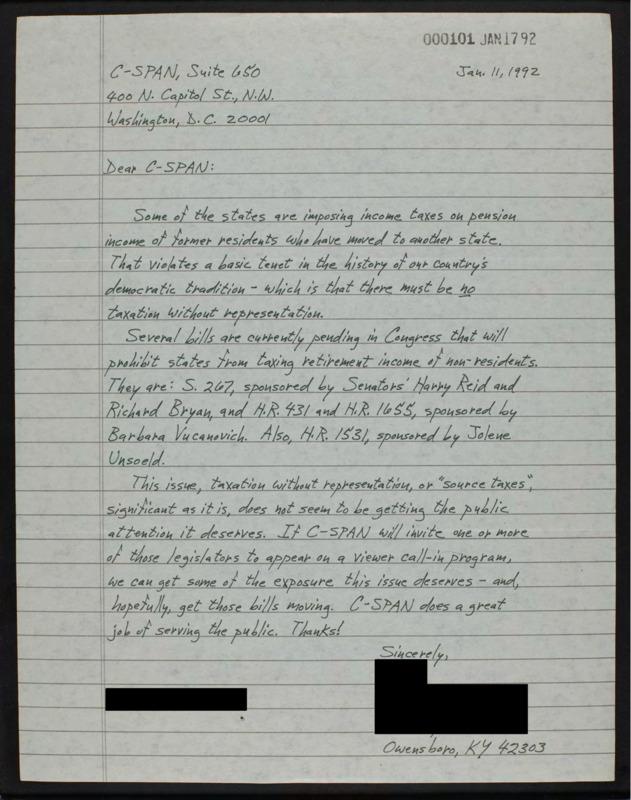 000101 JAN1792
C-SPAN, Suite 650
Jan. 11, 1992
400 N. Capitol St., N.W.
Washington, D.C. 20001
Dear C-SPAN:
Some of the states are imposing income taxes on pension
income of former residents who have moved to another state.
That violates a basic tenet in the history of our country's
democratic tradition – which is that there must be no
taxation without representation.
Several bills are currently pending in Congress that will
prohibit states from taxing retirement income of non-residents.
They are: S. 267, sponsored by Senators' Harry Reid and
Richard Bryan, and H.R. 431 and H.R. 1655, sponsored by
Barbara Vucanovich. Also, H.R. 1531, sponsored by Jolene
Unsoeld.
This issue, taxation without representation, or "source taxes",
significant as it is, does not seem to be getting the public
attention it deserves. If C-SPAN will invite one or more
of those legislators to appear on a viewer call-in program,
we can get some of the exposure this issue deserves – and,
hopefully, get those bills moving. C-SPAN does a great
job of serving the public. Thanks!
Sincerely,
Owensboro, KY 42303